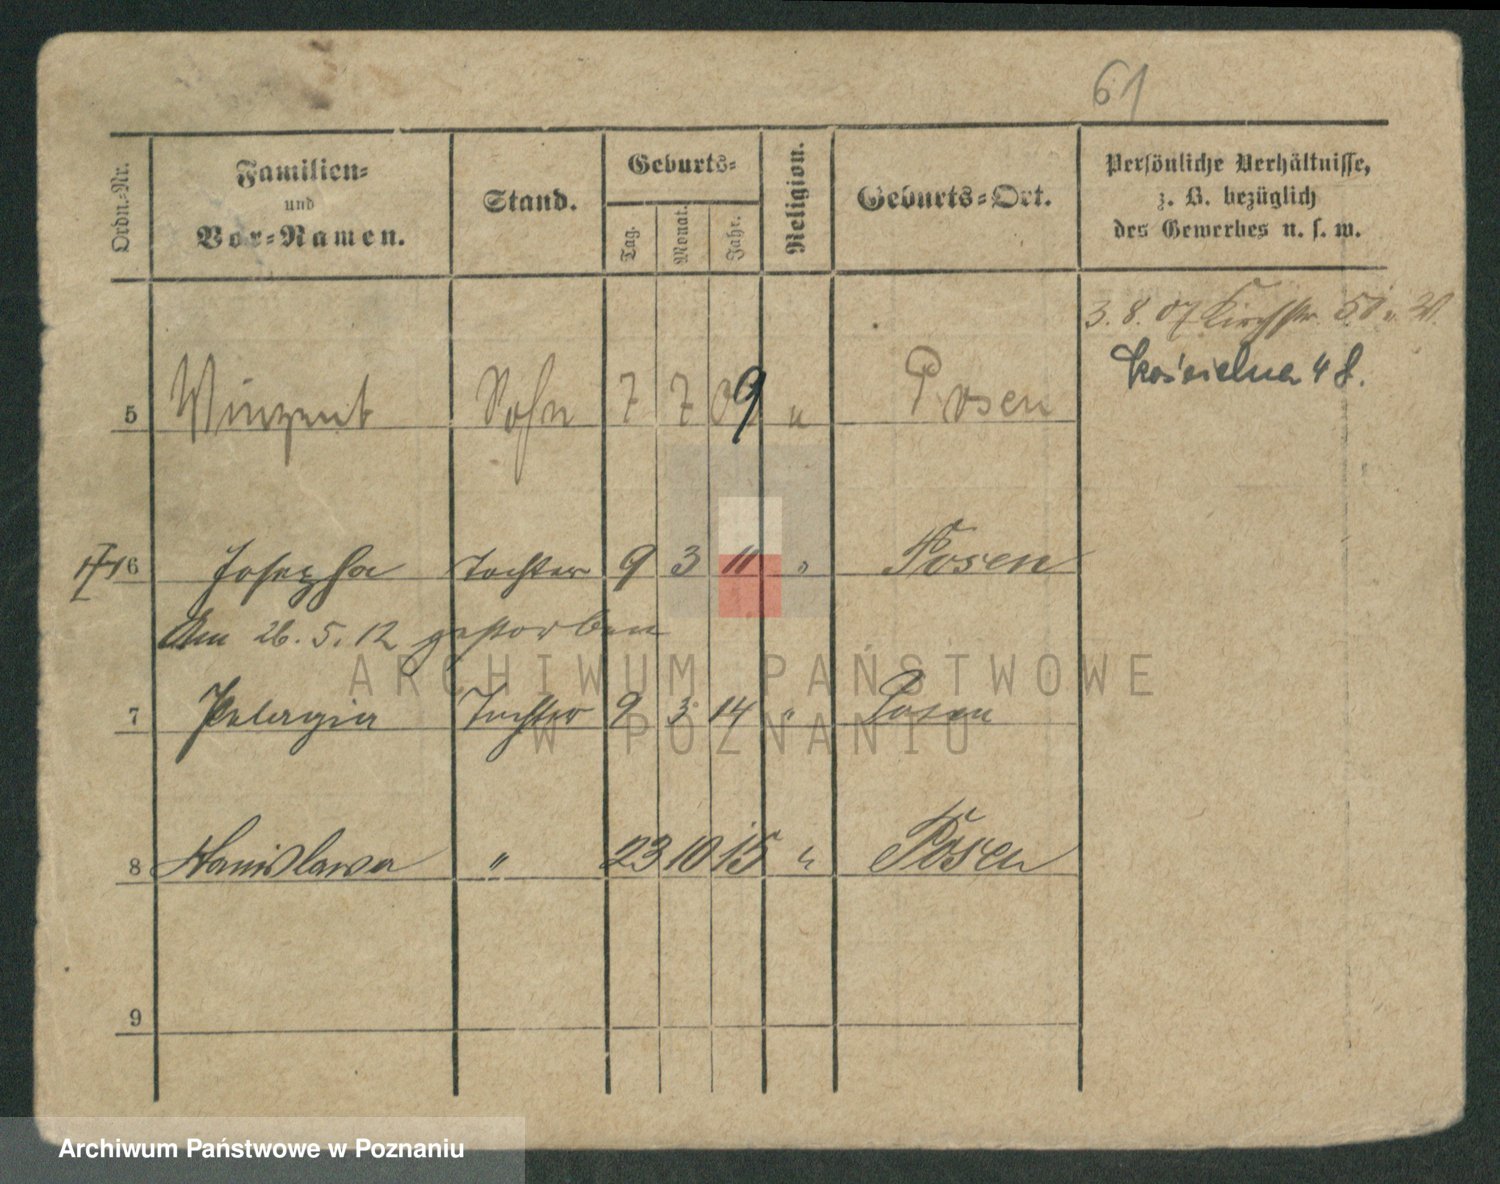 61
Ordn.-Nr. Familien- und Vor-Namen. Stand. Geburts- Tag. Monat. Jahr. Religion. Geburts-Ort. Persönliche Verhältnisse, z. B. bezüglich des Gewerbes u. s. w.
3. 8. 07 Kirchstr. 50
Kościelna 48.
5 Winzent Sohn 7 7 09 " Posen
6 Josepha Tochter 9 3 11 " Posen
Am 26. 5. 12 gestorben
7 Pelagia Tochter 9 3 14 " Posen
8 Stanislawa " 23 10 15 " Posen
9
ARCHIWUM PAŃSTWOWE
W POZNANIU
Archiwum Państwowe w Poznaniu